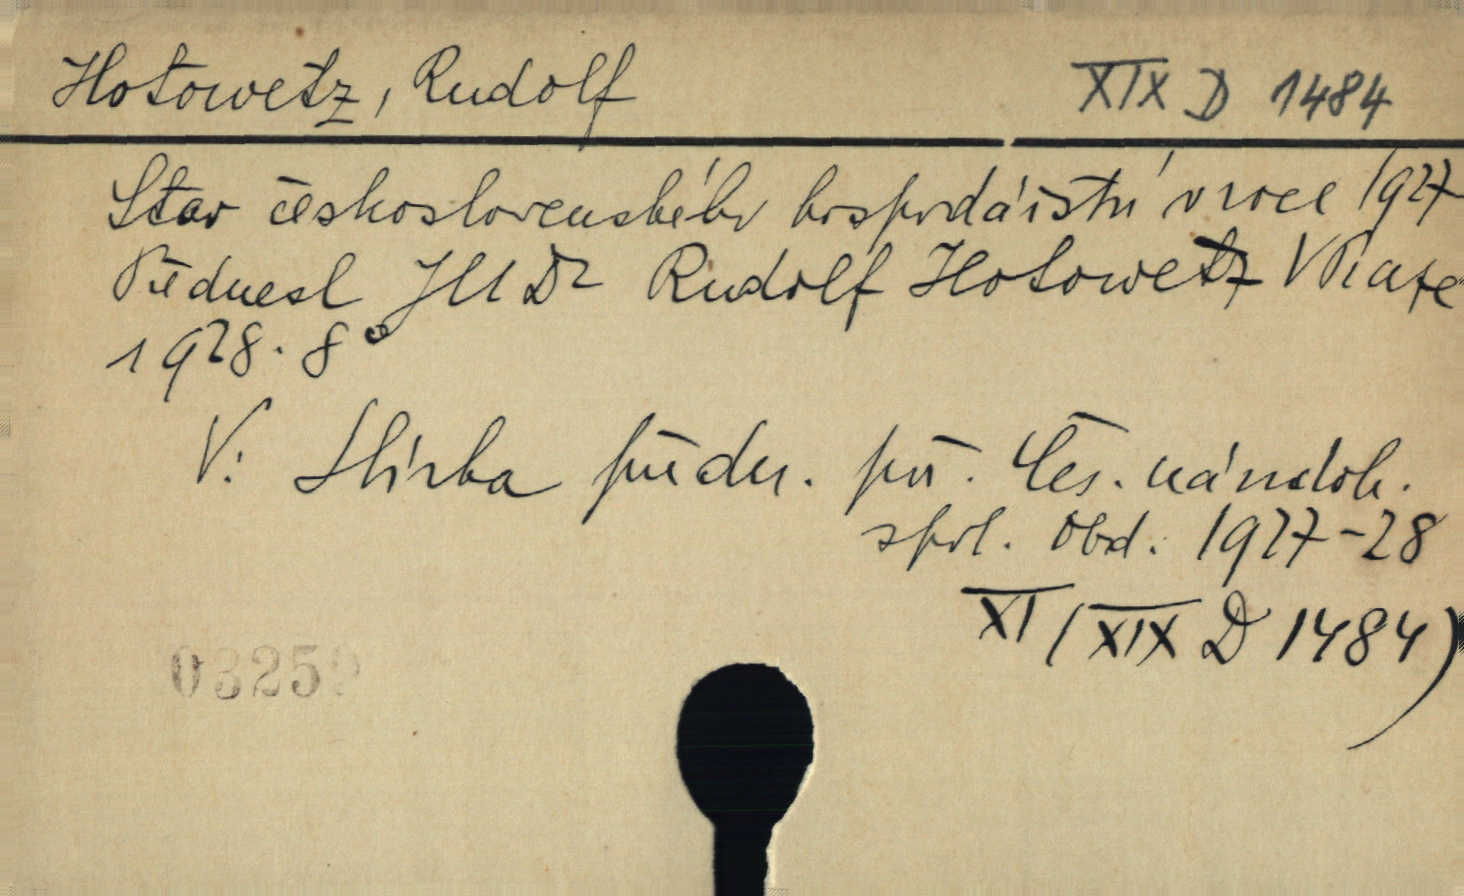 Hotowetz, Rudolf XIX D 1484
Stav československého hospodářství v roce 1927
Přednesl JUDr Rudolf Hotowetz V Praze
1928. 8°
V: Sbírka předn. poř. Čes. národoh.
spol. Obd. 1927-28
XI (XIX D 1484)
03259